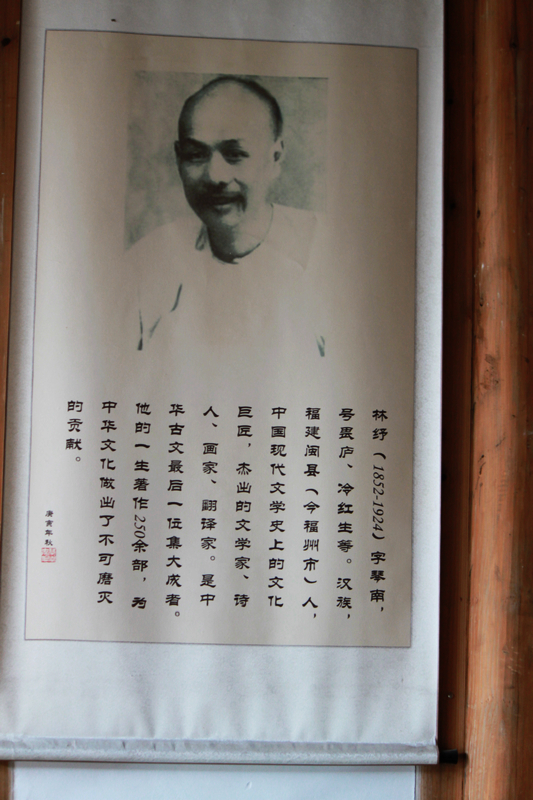 林纾（1852-1924）字琴南，
号畏庐、冷红生等。汉族，
福建闽县（今福州市）人，
中国现代文学史上的文化
巨匠，杰出的文学家、诗
人、画家、翻译家。是中
华古文最后一位集大成者。
他的一生著作250余部，为
中华文化做出了不可磨灭
的贡献。
庚寅年秋